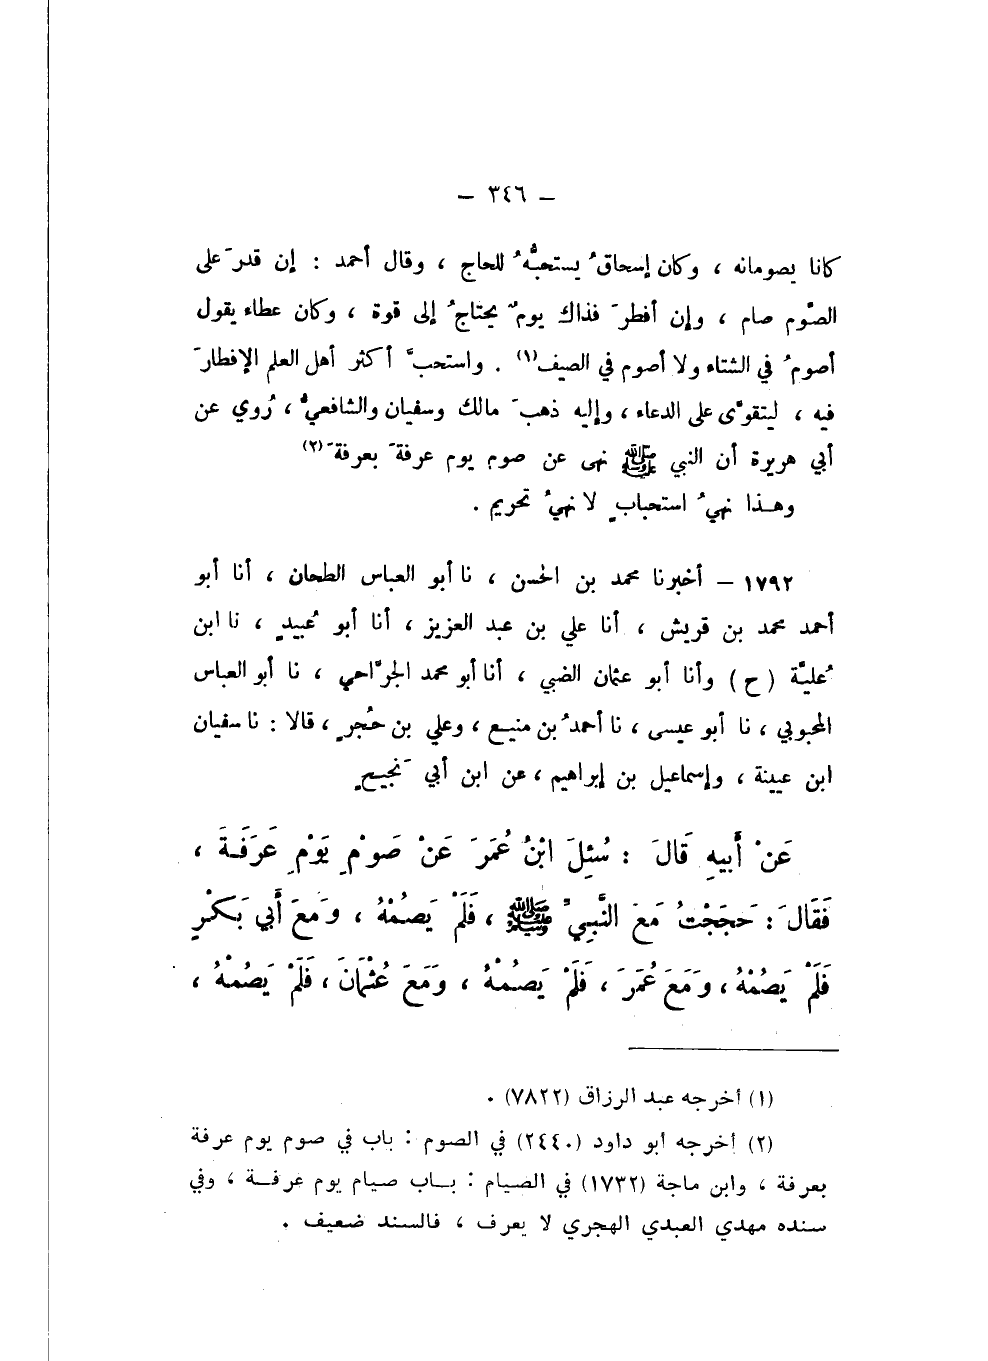 – ٣٤٦ –
كانا يصومانه ، وكان إسحاقُ يستحبُّهُ للحاج ، وقال أحمد : إن قدرَ على
الصَّوم صام ، وإن أفطرَ فذاك يومٌ يحتاجُ إلى قوة ، وكان عطاء يقول
أصومُ في الشتاء ولا أصوم في الصيف(١) . واستحبَّ أكثر أهل العلم الإفطارَ
فيه ، ليتقوَّى على الدعاء ، وإليه ذهبَ مالك وسفيان والشافعيُّ ، رُوي عن
أبي هريرة أن النبي ﷺ نهى عن صوم يوم عرفةَ بعرفةَ(٢)
وهـذا نهيُ استحبابٍ لا نهيُ تحريم .
١٧٩٢ – أخبرنا محمد بن الحسن ، نا أبو العباس الطحان ، أنا أبو
أحمد محمد بن قريش ، أنا علي بن عبد العزيز ، أنا أبو عُبيدٍ ، نا ابن
عُليَّة (ح) وأنا أبو عثمان الضبي ، أنا أبو محمد الجرَّاحي ، نا أبو العباس
المحبوبي ، نا أبو عيسى ، نا أحمدُ بن منيـع ، وعلي بن حُجرٍ ، قالا : نا سفيان
ابن عيينة ، وإسماعيل بن إبراهيم ، عن ابن أبي نَجيـحٍ
عَنْ أَبيهِ قَالَ : سُئِلَ ابْنُ عُمَرَ عَنْ صَوْمِ يَوْمِ عَرَفَـةَ ،
فَقَالَ : حَجَجْتُ مَعَ النَّبِيِّ ﷺ ، فَلَمْ يَصُمْهُ ، وَمَعَ أَبي بَـكْرٍ
فَلَمْ يَصُمْهُ ، وَمَعَ عُمَرَ ، فَلَمْ يَصُمْهُ ، وَمَعَ عُثْمَانَ ، فَلَمْ يَصُمْهُ ،
(١) أخرجه عبد الرزاق (٧٨٢٢) .
(٢) أخرجه أبو داود (٢٤٤٠) في الصوم : باب في صوم يوم عرفة
بعرفة ، وابن ماجة (١٧٣٢) في الصيام : بـاب صيام يوم عرفـة ، وفي
سنده مهدي العبدي الهجري لا يعرف ، فالسند ضعيف .